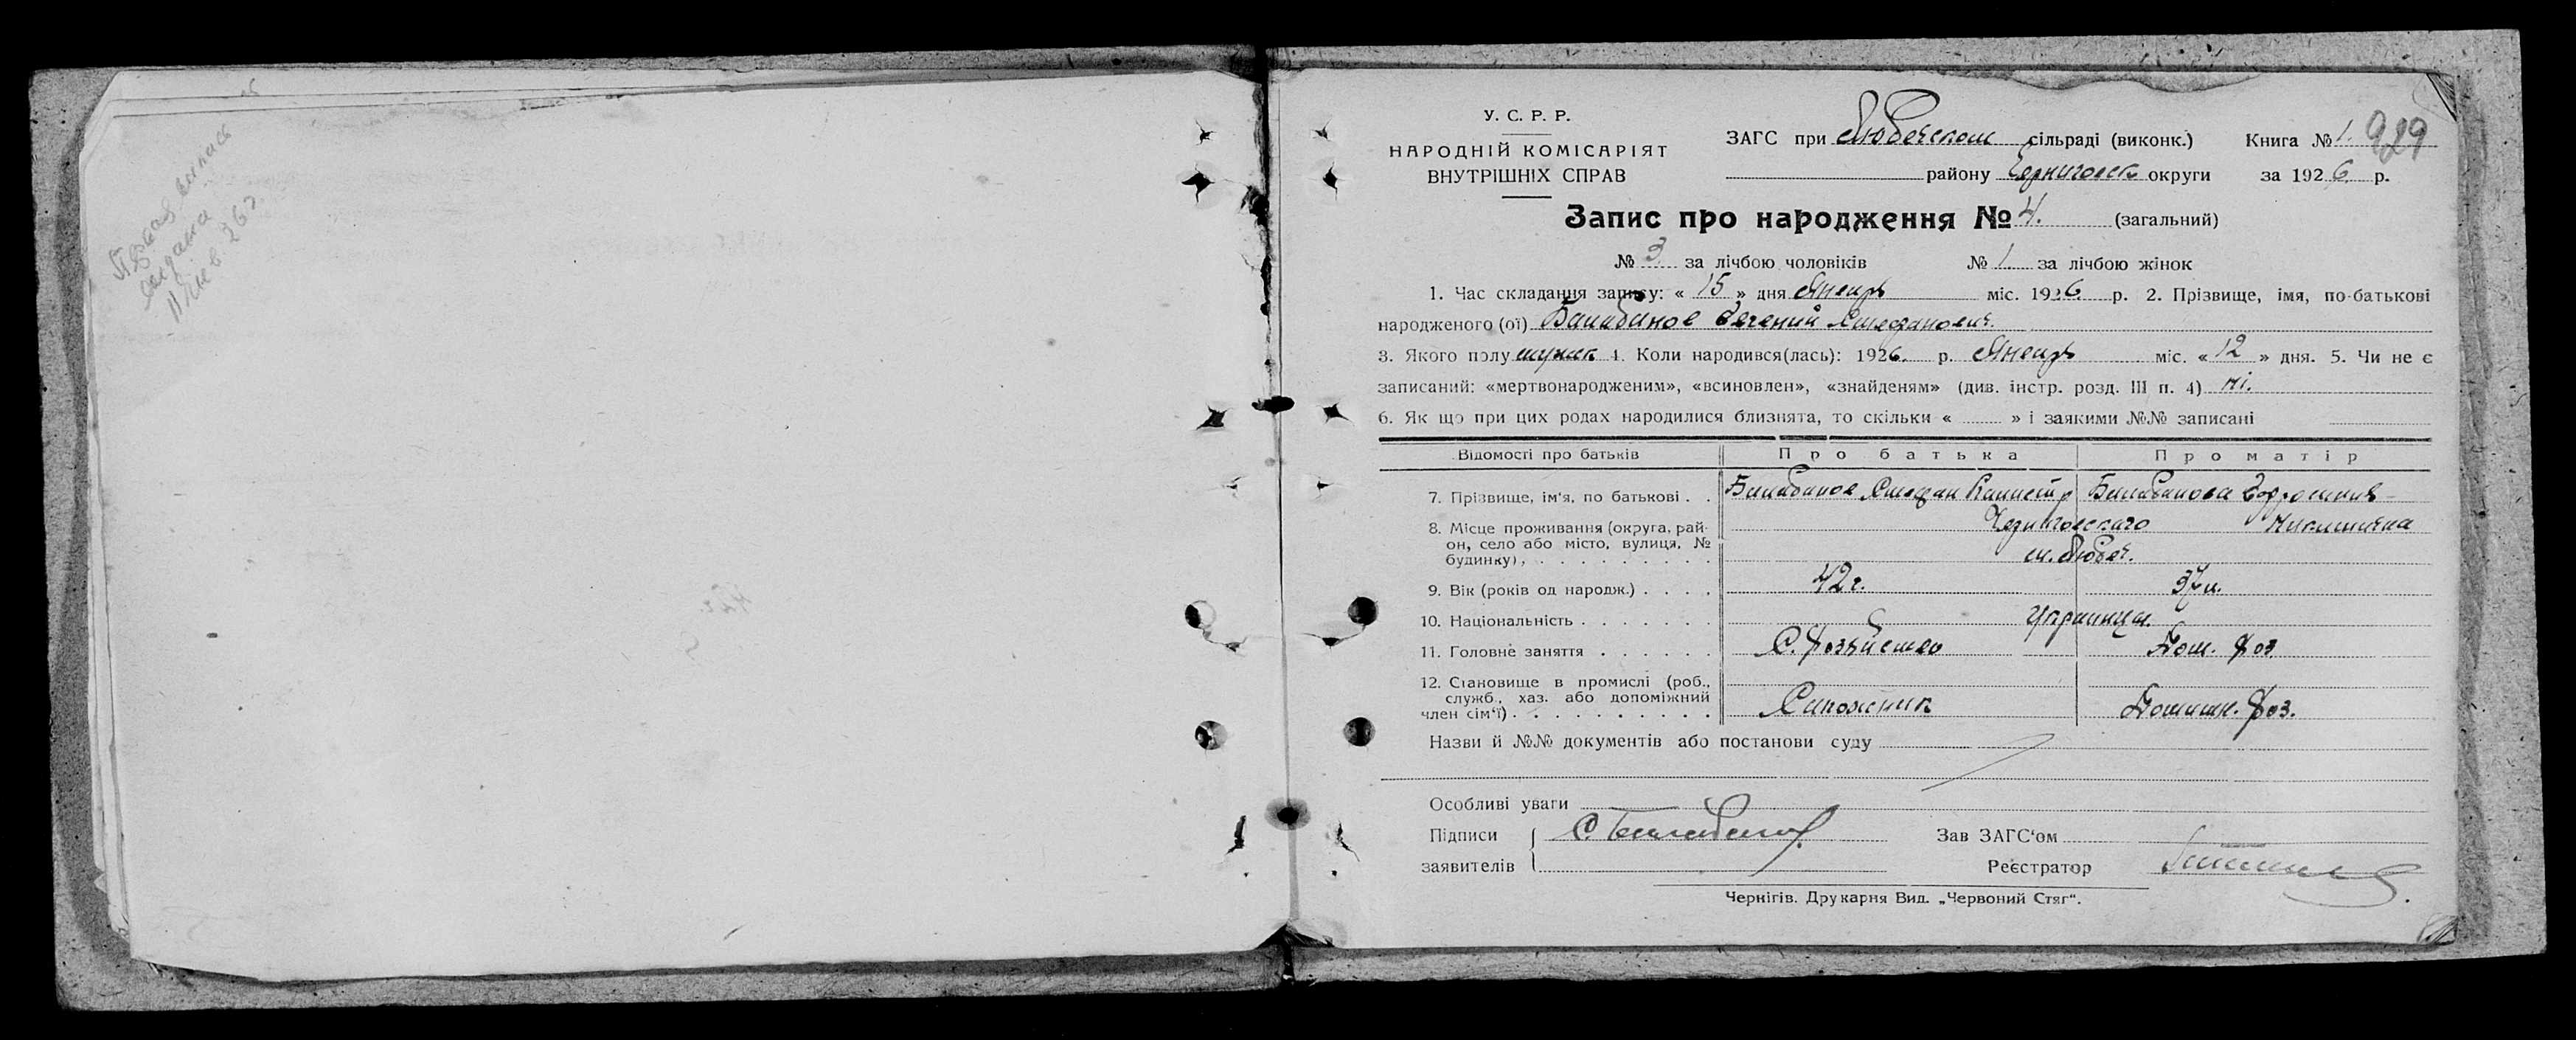 Первая выпись
выдана
11 янв. 26 г
У. С. Р. Р.
НАРОДНІЙ КОМІСАРІЯТ
ВНУТРІШНІХ СПРАВ
ЗАГС при Любечском сільраді (виконк.)
району Черниговск округи
Книга № 1. 929
за 1926. р.
Запис про народження № 4. (загальний)
№ 3. за лічбою чоловіків № 1. за лічбою жінок
1. Час складання запису: « 15 » дня Январь міс. 1926. р. 2. Прізвище, імя, по-батькові
народженого (ої) Балабанов Евгений Стефанович.
3. Якого полу мужск 4. Коли народився(лась): 1926. р. Январь міс. « 12 » дня. 5. Чи не є
записаний: «мертвонародженим», «всиновлен», «знайденям» (див. інстр. розд. III п. 4) ні.
6. Як що при цих родах народилися близнята, то скільки « » і заякими №№ записані
Відомості про батьків Про батька Про матір
7. Прізвище, ім'я, по батькові . . Балабанов Стефан Балабанова
8. Місце проживання (округа, рай- Черниговского
он, село або місто, вулиця, № м. Любеч.
будинку), . . . . . . . . .
9. Вік (років од народж.) . . . . 42 г. 37 л.
10. Національність . . . . . . . Украинцы.
11. Головне заняття . . . . . . С. Хозяйство Дом. Хоз.
12. Становище в промислі (роб.,
служб., хаз. або допоміжний
член сім'ї) . . . . . . . . . . Сапожник Домашн. Хоз.
Назви й №№ документів або постанови суду
Особливі уваги
Підписи С. Балабанов
заявителів
Зав ЗАГС'ом
Реєстратор
Чернігів. Друкарня Вид. „Червоний Стяг“.